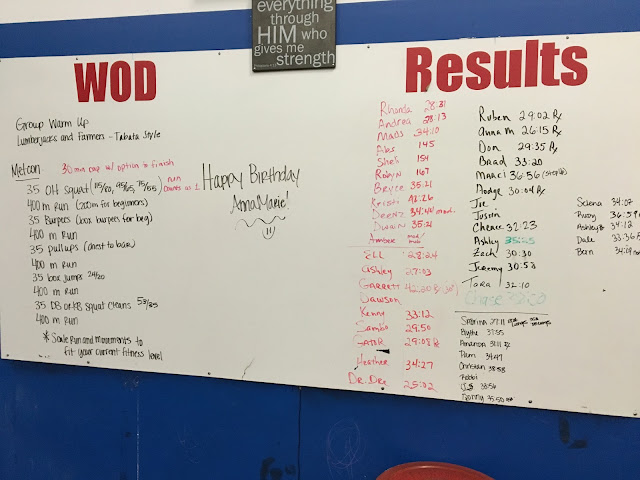 everything
through
HIM who
gives me
strength
WOD
Group Warm Up
Lumberjacks and Farmers - Tabata Style
Metcon
30 min cap w/ option to finish
35 OH squat (115/80, 95/65, 75/55)
run counts as 1
400 m run (200m for beginners)
35 Burpees (box burpees for beg)
400 m run
35 pullups (chest to bar)
400 m run
35 box jumps 24/20
400 m run
35 DB or KB squat cleans 53/35
400 m run
* Scale run and movements to
fit your current fitness level
Happy Birthday
AnnaMarie!
Results
Rhonda 28:31
Andrea 28:13
Mads 34:10
Abs 145
She's 154
Robyn 167
Bryce 35:21
Kristi
Deenz 34:40 mod.
Dwain 35:21
ELL 28:24
Ashley 27:03
Garrett
Dawson
Kenny 33:12
Sambo 29:50
Gator 29:08 Rx
Heather 34:27
Dr. Dre 25:02
Ruben 29:02 Rx
Anna M 26:15 Rx
Don 29:35 Rx
Brad 33:20
Marci 36:56
Dodge 30:04 Rx
Joe
Justin
Cherie 32:23
Ashley
Zach 30:30
Jeremy 30:53
Tara 32:10
Chase
Sabrina 27:11
Blythe 37:55
Amanda 31:11 Rx
Pam 34:47
Christian 38:58
Robbi
J.S. 38:56
Donny 35:50
Selena 34:07
Rusty 36:59
Ashley B 34:12
Dale 33:36
Ben 34:09